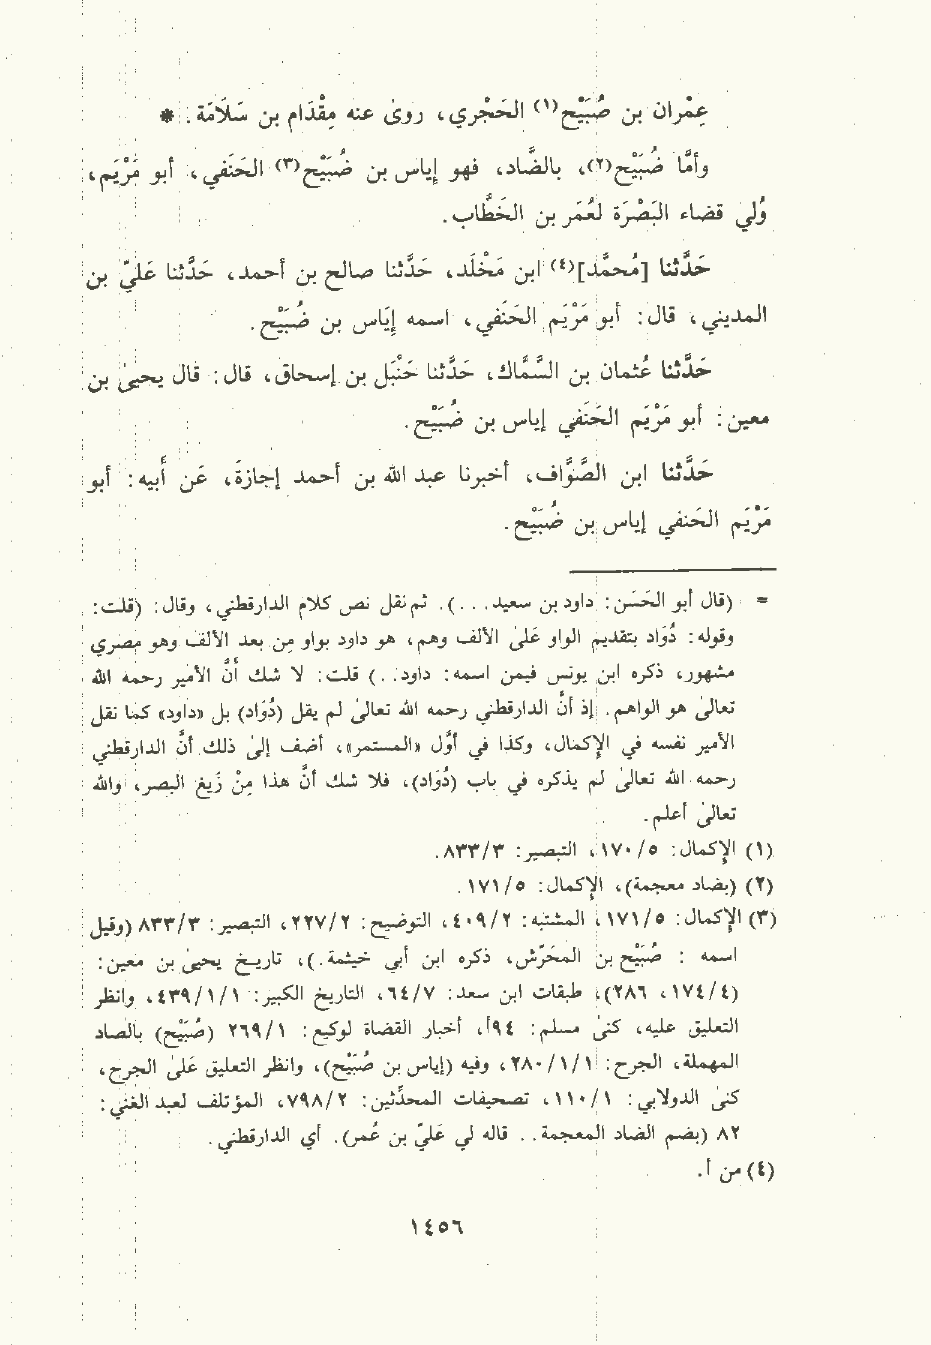 عِمْران بن صُبَيْح(١) الحَجْري، روىٰ عنه مِقْدَام بن سَلَامَة. *
وأمَّا ضُبَيْح(٢)، بالضَّاد، فهو إياس بن ضُبَيْح(٣) الحَنَفي، أبو مَرْيَم،
وُلي قضاء البَصْرَة لعُمَر بن الخَطَّاب.
حَدَّثنا [مُحمَّد](٤) ابن مَخْلَد، حَدَّثنا صالح بن أحمد، حَدَّثنا عَليّ بن
المديني، قال: أبو مَرْيَم الحَنَفي، اسمه إيَاس بن ضُبَيْح.
حَدَّثنا عُثمان بن السَّمَّاك، حَدَّثنا حَنْبَل بن إسحاق، قال: قال يحيىٰ بن
معين: أبو مَرْيَم الحَنَفي إياس بن ضُبَيْح.
حَدَّثنا ابن الصَّوَّاف، أخبرنا عبد الله بن أحمد إجازةً، عَن أبيه: أبو
مَرْيَم الحَنفي إياس بن ضُبَيْح.
= (قال أبو الحَسَن: داود بن سعيد...). ثم نقل نص كلام الدارقطني، وقال: (قلت:
وقوله: دُوَاد بتقديم الواو علىٰ الألف وهم، هو داود بواو مِن بعد الألف وهو مصري
مشهور، ذكره ابن يونس فيمن اسمه: داود..) قلت: لا شك أنَّ الأمير رحمه الله
تعالىٰ هو الواهم. إذ أنَّ الدارقطني رحمه الله تعالىٰ لم يقل (دُوَاد) بل «داود» كما نقل
الأمير نفسه في الإكمال، وكذا في أوَّل «المستمر»، أضف إلىٰ ذلك أنَّ الدارقطني
رحمه الله تعالىٰ لم يذكره في باب (دُوَاد)، فلا شك أنَّ هذا مِنْ زَيغ البصر، والله
تعالىٰ أعلم.
(١) الإكمال: ٥/١٧٠، التبصير: ٣/٨٣٣.
(٢) (بضاد معجمة)، الإكمال: ٥/١٧١.
(٣) الإكمال: ٥/١٧١، المشتبه: ٢/٤٠٩، التوضيح: ٢/٢٢٧، التبصير: ٣/٨٣٣ (وقيل
اسمه : صُبَيْح بن المحَرّش، ذكره ابن أبي خيثمة.)، تاريخ يحيىٰ بن معين:
(٤/١٧٤، ٢٨٦)، طبقات ابن سعد: ٧/٦٤، التاريخ الكبير: ١/١/٤٣٩، وانظر
التعليق عليه، كنىٰ مسلم: ٩٤أ، أخبار القضاة لوكيع: ١/٢٦٩ (صُبَيْح) بالصاد
المهملة، الجرح: ١/١/٢٨٠، وفيه (إياس بن صُبَيْح)، وانظر التعليق علىٰ الجرح،
كنىٰ الدولابي: ١/١١٠، تصحيفات المحدِّثين: ٢/٧٩٨، المؤتلف لعبد الغني:
٨٢ (بضم الضاد المعجمة.. قاله لي عَليّ بن عُمر). أي الدارقطني.
(٤) من أ.
١٤٥٦